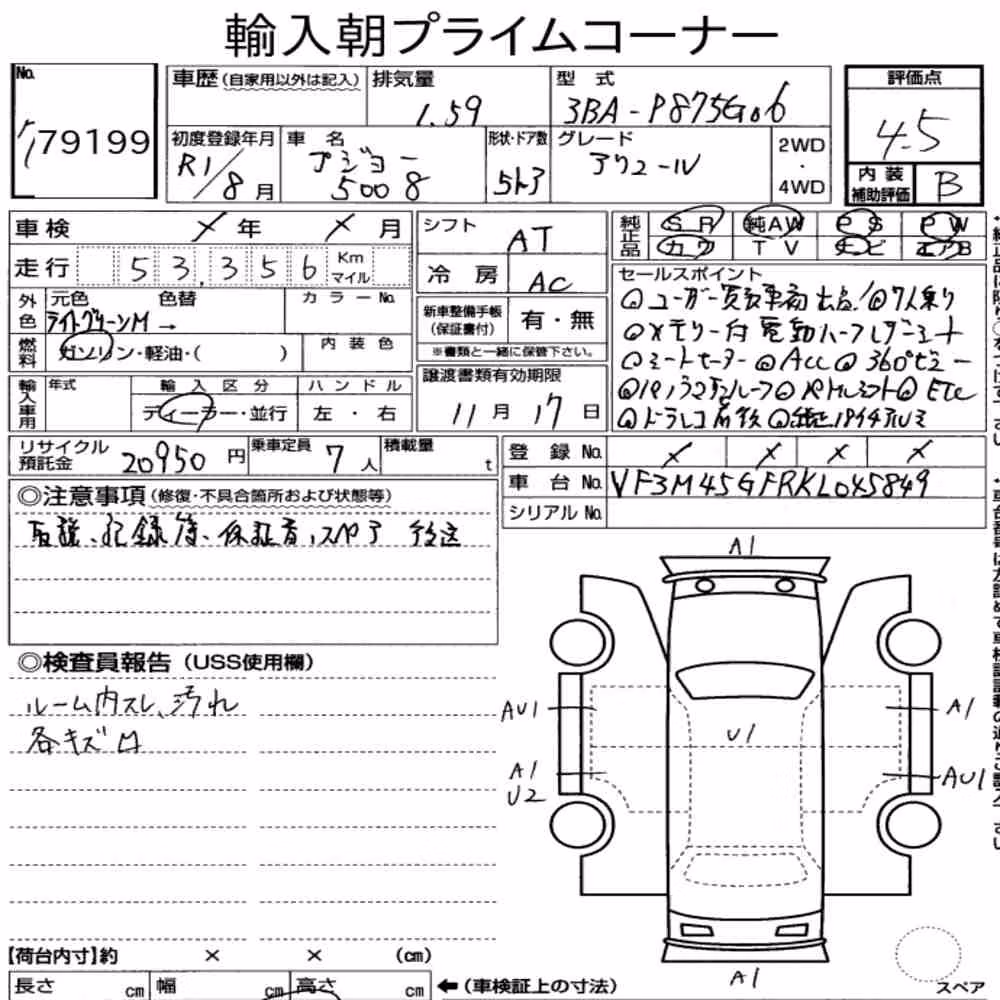 輸入朝プライムコーナー
No. 79199
車歴(自家用以外は記入) 排気量 1.59 型式 3BA-P875G06 評価点 4.5
初度登録年月 R1/8月 車名 プジョー 5008 形状・ドア数 5ドア グレード アリュール 2WD・4WD 内装補助評価 B
車検 × 年 × 月 シフト AT 純正品 SR 純AW PS PW
カワ TV ナビ エアB
走行 53,356 Km マイル 冷房 AC
外色 元色 色替 カラーNo. ライトグリーンM →
新車整備手帳(保証書付) 有・無
※書類と一緒に保管下さい。
燃料 ガソリン・軽油・( ) 内装色
輸入車用 年式 輸入区分 ディーラー・並行 ハンドル 左・右
譲渡書類有効期限 11月17日
セールスポイント
◎ユーザー買取車両出品!◎7人乗り
◎メモリー付電動ハーフレザーシート
◎シートヒーター◎ACC◎360°ビュー
◎パノラマルーフ◎Pトルシフト◎ETC
◎ドラレコ前後◎純正18インチアルミ
リサイクル預託金 20950円 乗車定員 7人 積載量 t
登録No. × × × ×
車台No. VF3M45GFRKL045849
シリアルNo.
◎注意事項(修復・不具合箇所および状態等)
取説、記録簿、保証書、スペア 後送
◎検査員報告(USS使用欄)
ルーム内スレ、汚れ
各キズ凹
A1
AU1
A1
U1
A1
U2
AU1
A1
【荷台内寸】約 × × (cm)
長さ cm 幅 cm 高さ cm ←(車検証上の寸法)
スペア